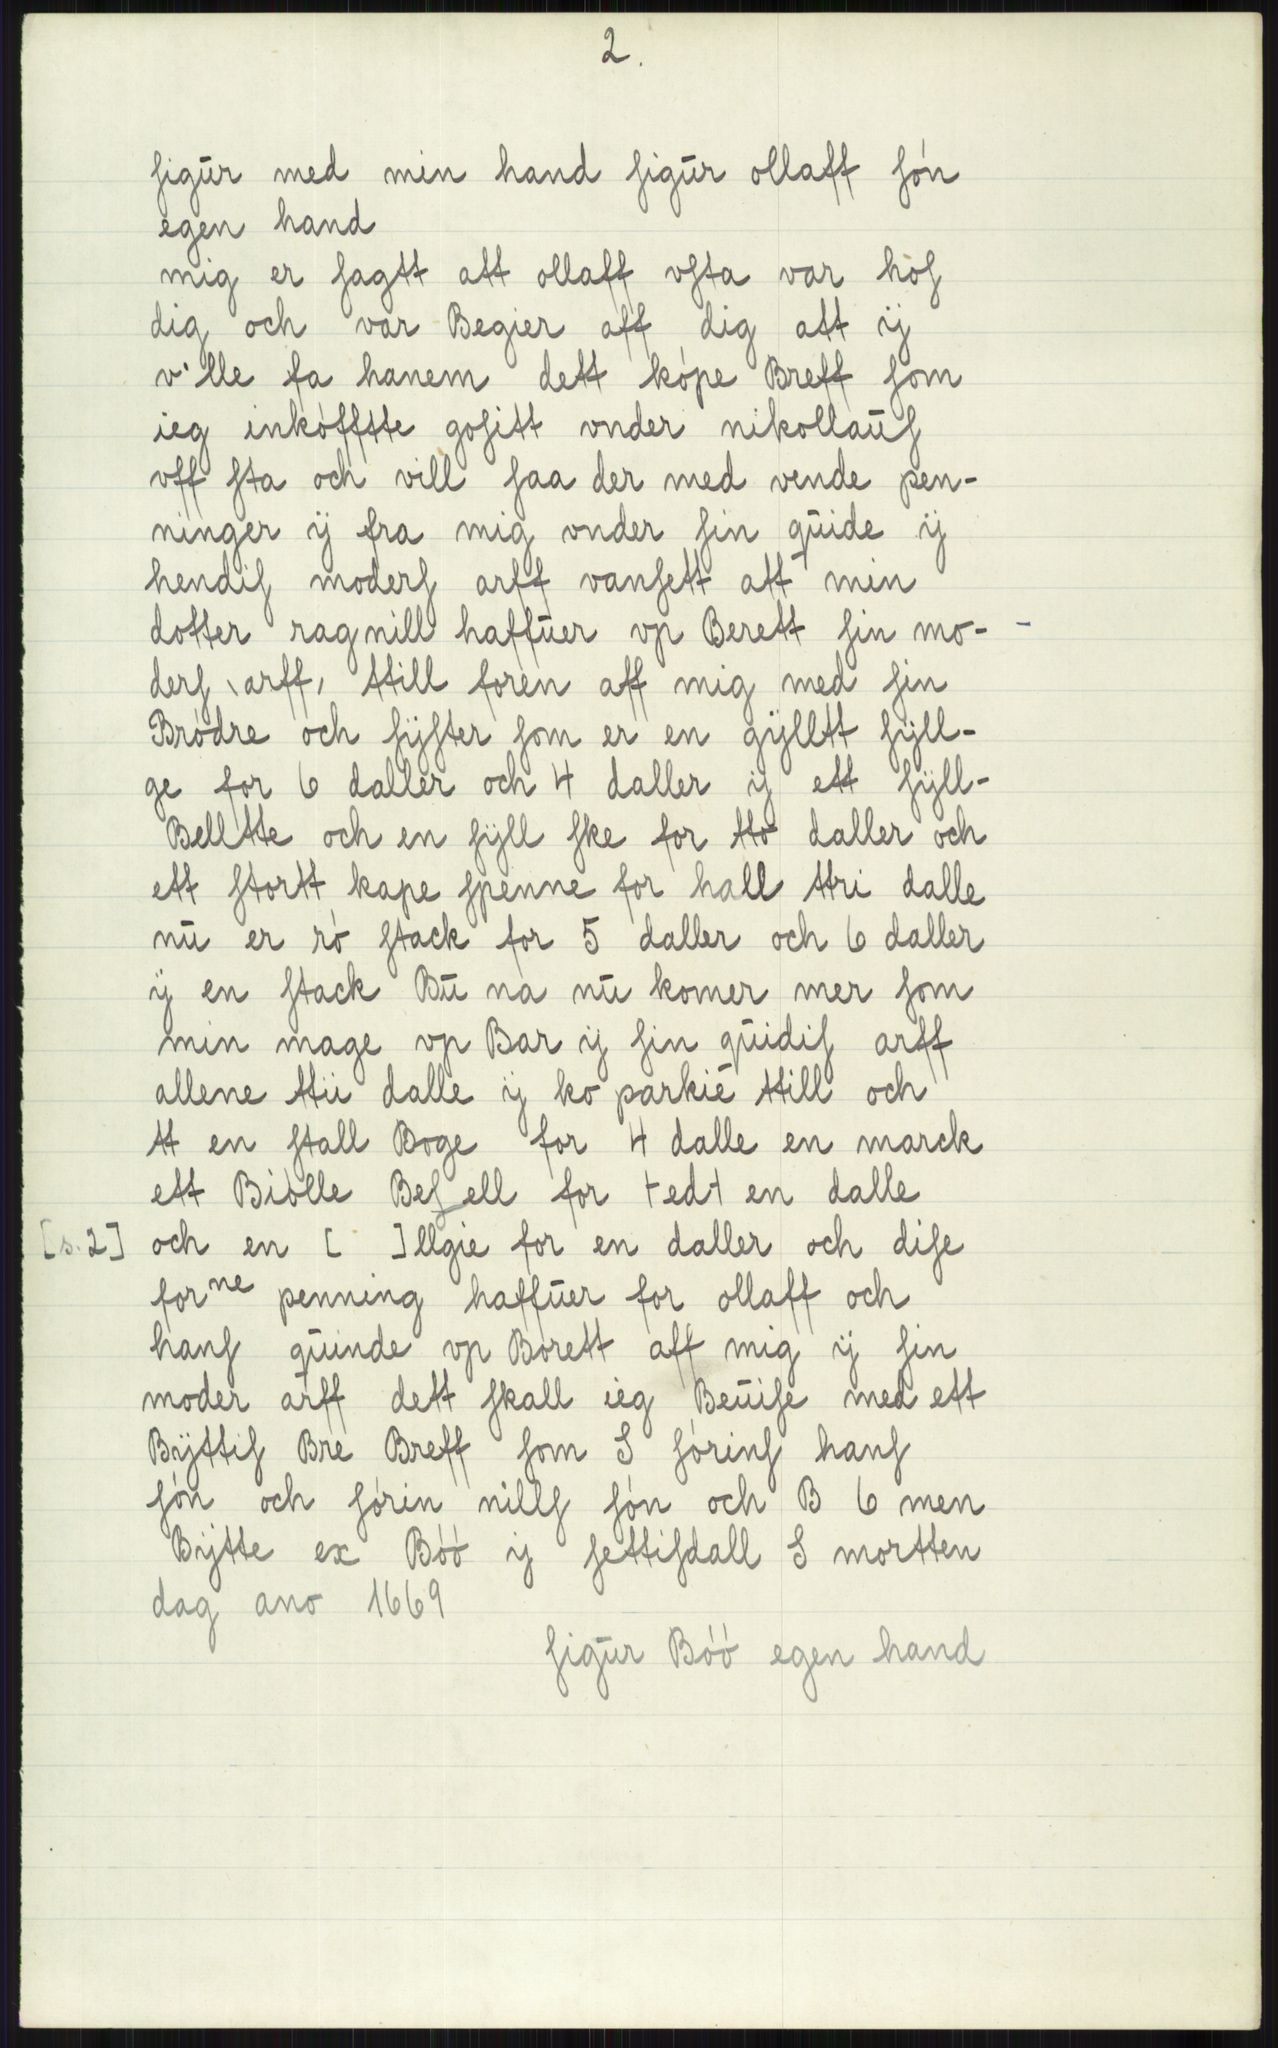 2.
ſigūr med min hand ſigūr ollaff ſón
egen hand
mig er ſagtt att ollaff vſta var hoſ
dig och var Begier aff dig att ij
v·lle fa hanem dett kópe Breff ſom
ieg inkófftte goſitt vnder nikollaūſ
vff ſta och vill ſaa der med vende pen-
ninger ÿ fra mig vnder ſin qūide ij
hendiſ moderſ arff vanſett att min
dotter ragnill haffūer vp Berett ſin mo-
derſ \arff, ttill foren aff mig med ſin
Bródre och ſÿſter ſom er en gÿlltt ſÿll-
ge for 6 daller och 4 daller ij ett ſÿll-
Belltte och en ſÿll ſke for tto daller och
ett ſtortt kape ſpenne for hall ttri dalle
nū er ró ſtack for 5 daller och 6 daller
ÿ en ſtack Bū na nū komer mer ſom
min mage vp Bar ij ſin qūidiſ arff
allene ttii dalle ÿ ko parkie ttill och
tt en ſtall Boge for 4 dalle en marck
ett Biólle Beſell for tedt en dalle
[s. 2] och en [ ]llgie for en daller och diſe
forne penning haffūer for ollaff och
hanſ qūinde vp Borett aff mig ij ſin
moder arff dett ſkall ieg Beūiſe med ett
Bÿttiſ Bre Breff ſom S ſórinſ hanſ
ſón och ſórin nillſ ſón och B 6 men
Bÿtte ex Bóó ij ſettiſdall S mortten
dag ano 1669
ſigūr Bóó egen hand